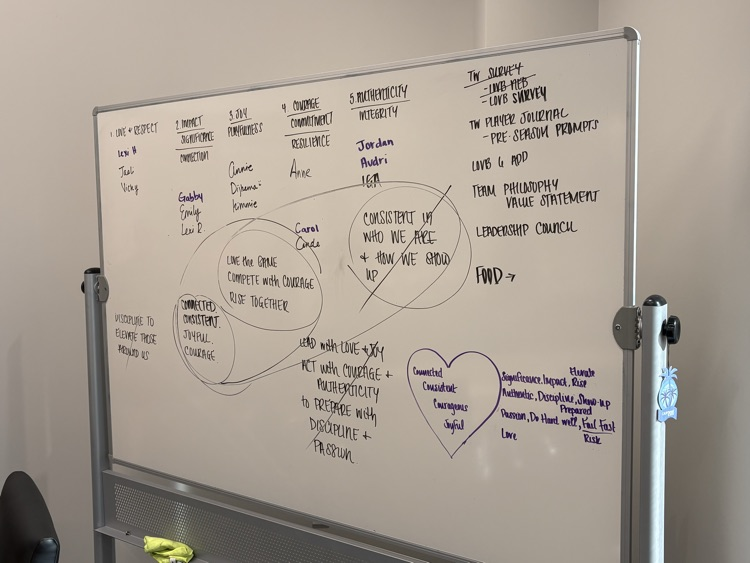 1. LOVE + RESPECT
Lexi H
Tesi
Vicky
2. IMPACT
SIGNIFICANCE
CONNECTION
Gabby
Emily
Lexi R.
3. JOY
PLAYFULNESS
Annie
Dijkema
Kimmie
4. COURAGE
COMMITMENT
RESILIENCE
Anne
Carol
Cande
5. AUTHENTICITY
INTEGRITY
Jordan
Audri
LEA
TW SURVEY
- LOVB SURVEY
TW PLAYER JOURNAL
- PRE-SEASON PROMPTS
LOVB 6 ADD
TEAM PHILOSOPHY
VALUE STATEMENT
LEADERSHIP COUNCIL
FOOD →
CONSISTENT IN
WHO WE ARE
+ HOW WE SHOW
UP
LOVE the GAME
COMPETE with COURAGE
RISE TOGETHER
CONNECTED
CONSISTENT.
JOYFUL.
COURAGE
DISCIPLINE TO
ELEVATE THOSE
AROUND US
LEAD with LOVE + JOY
ACT with COURAGE +
AUTHENTICITY
to PREPARE with
DISCIPLINE +
PASSION
Connected
Consistent
Courageous
Joyful
Elevate
Significance, Impact, Rise
Authentic, Discipline, Show-up
Prepared
Passion, Do Hard well, Fail Fast
Love
Risk